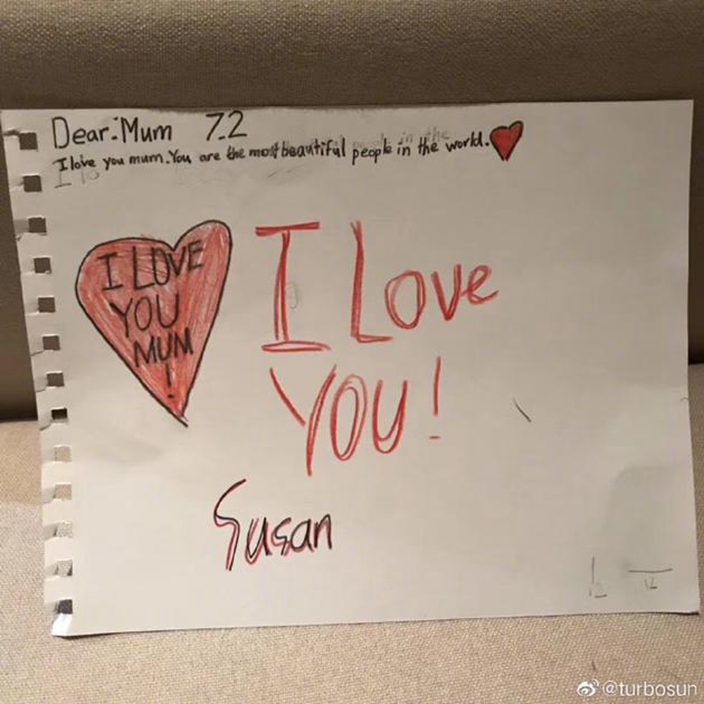 Dear:Mum 7.2
I love you mum. You are the most beautiful people in the world.
I LOVE
YOU
MUM
!
I Love
YOU!
Susan
12
@turbosun